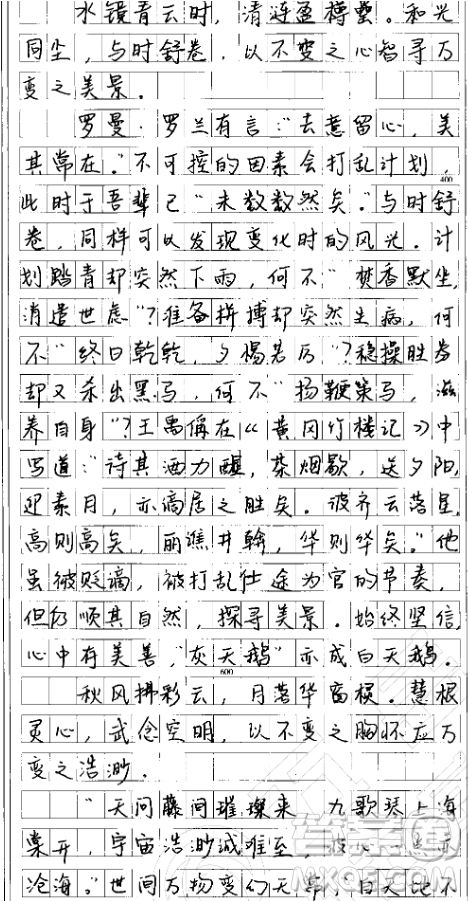 水镜青云时，清涟盈樽罍。和光
同尘，与时舒卷，以不变之心智寻万
变之美景。
罗曼·罗兰有言：“去意留心，美
其常在。”不可控的因素会打乱计划，
400
此时于吾辈已“未数数然矣。”与时舒
卷，同样可以发现变化时的风光。计
划踏青却突然下雨，何不“焚香默坐，
消遣世虑”？准备拼搏却突然生病，何
不“终日乾乾，夕惕若厉”？稳操胜券
却又杀出黑马，何不“扬鞭策马，滋
养自身”？王禹偁在《黄冈竹楼记》中
写道：“待其酒力醒，茶烟歇，送夕阳，
迎素月，亦谪居之胜矣。彼齐云落星，
高则高矣，丽谯井榦，华则华矣。”他
虽被贬谪，被打乱仕途为官的节奏，
但仍顺其自然，探寻美景。始终坚信
心中有美善，“灰天鹅”亦成白天鹅。
600
秋风拂彩云，月落华窗棂。慧根
灵心，武念空明，以不变之胸怀应万
变之浩渺。
“天问藤间璀璨来，九歌琴上海
棠开，宇宙浩渺诚难至，彼心一点亦
沧海。”世间万物变幻无常，自天地不